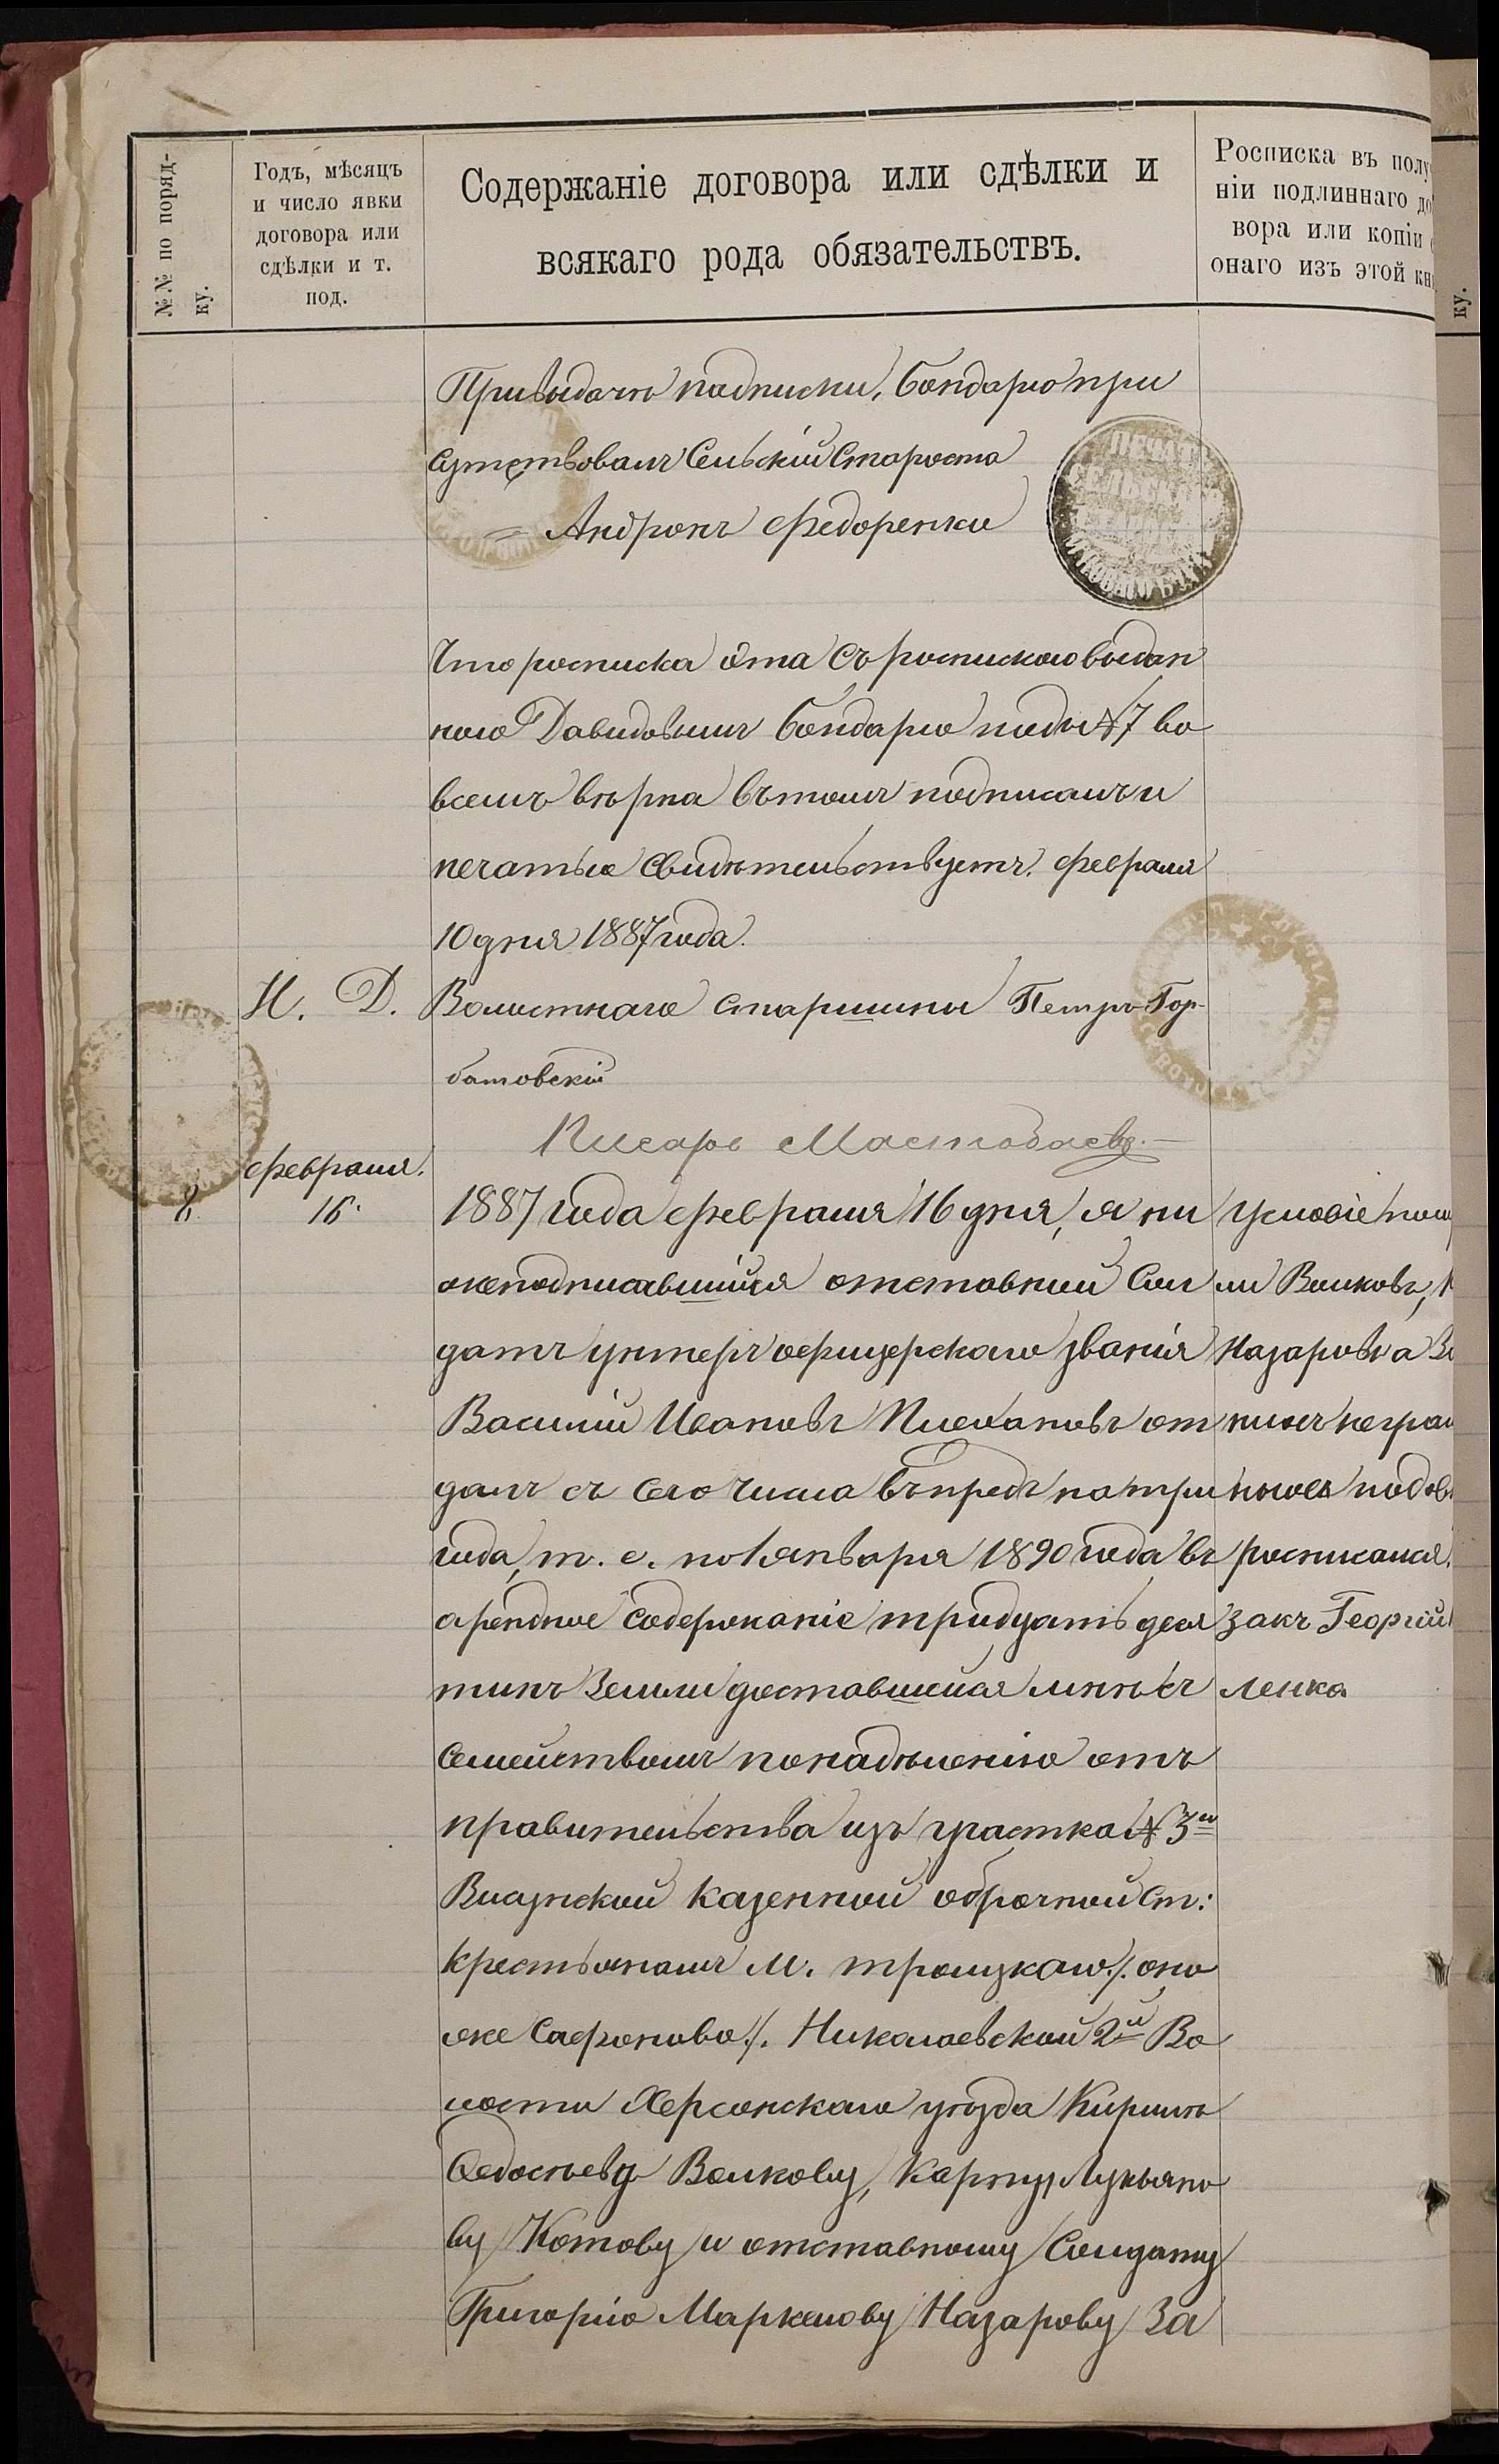 №№ по поряд-
ку.
Годъ, мѣсяцъ
и число явки
договора или
сдѣлки и т.
под.
Содержаніе договора или сдѣлки и
всякаго рода обязательствъ.
Росписка въ полу
ніи подлиннаго до
вора или копіи
онаго изъ этой кн
ку.
При выдачѣ подписки, бондарю при
сутствовалъ Сельскій Староста
Андронъ Федоренки
Что росписка эта съ роспискою выдан
ною Давидовымъ бондарю подъ № 7 во
всемъ вѣрна въ томъ подписомъ и
печатью свидѣтельствуетъ. февраля
10 дня 1887 года.
И. Д. Волостнаго старшины Петръ Гор-
батовскій
Писарь
февраля.
8. 16.
1887 года февраля 16 дня, я ни
жеподписавшійся отставной Сол
датъ унтеръ офицерскаго званія
Василій Ивановъ Плехановъ от
далъ съ сего числа въпредъ на три
года, т. е. по 1 января 1890 года въ
арендное содержаніе тридцать деся
тинъ Земли доставшейся мнѣ съ
семействомъ по надѣленію отъ
правительства изъ участка № 3й
Висунской казенной оброчной Ст:
крестьянамъ м. троицкаго /. оно
же Сафоново /. Николаевской 2й Во
лости Херсонскаго уѣзда Кирилѣ
Ѳедосѣеву Волкову, Карпу Лукьяно
ву Котову и отставному Солдату
Григорію Маркелову Назарову за
Условіе
ли Волковъ, К
Назаровъ а
нихъ неграм
ныхъ
росписался.
закъ Георгій
ленко